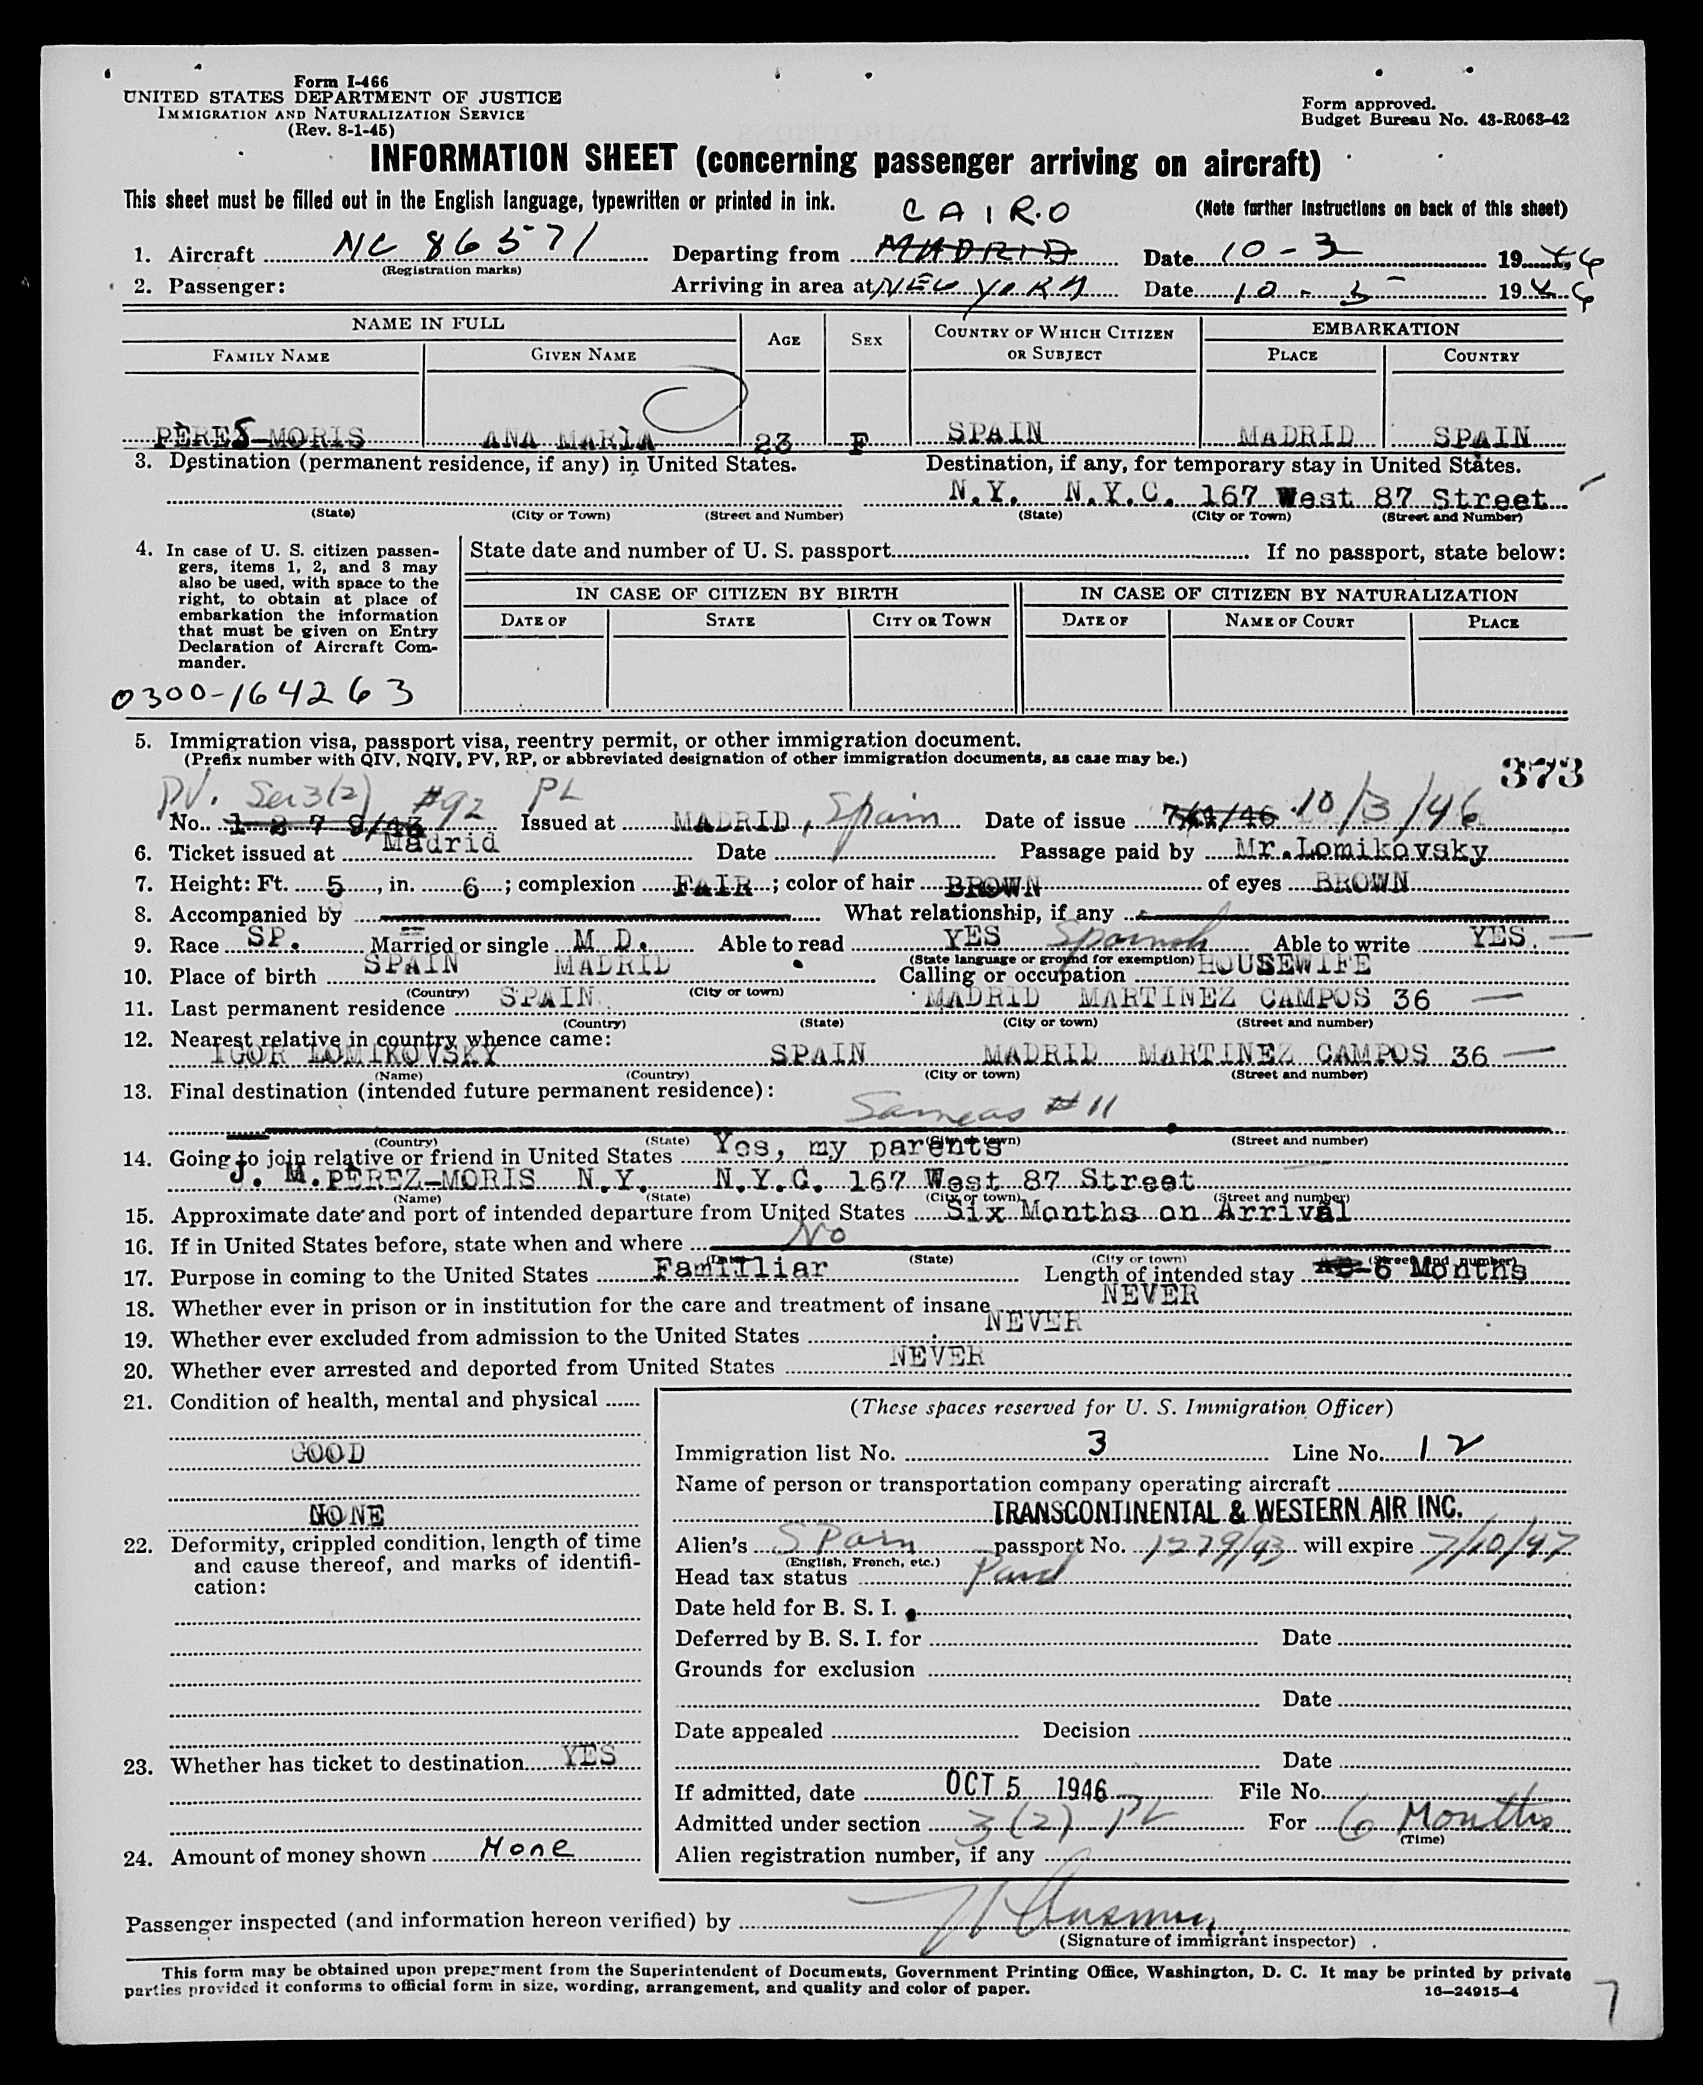 Form I-466
UNITED STATES DEPARTMENT OF JUSTICE
IMMIGRATION AND NATURALIZATION SERVICE
(Rev. 8-1-45)
Form approved.
Budget Bureau No. 43-R063-42
INFORMATION SHEET (concerning passenger arriving on aircraft)
This sheet must be filled out in the English language, typewritten or printed in ink.
(Note further instructions on back of this sheet)
CAIRO
1. Aircraft NC 86571 Departing from MADRID Date 10-3 1946
(Registration marks)
2. Passenger: Arriving in area at NEW YORK Date 10-5 1946
NAME IN FULL AGE SEX COUNTRY OF WHICH CITIZEN OR SUBJECT EMBARKATION
FAMILY NAME GIVEN NAME PLACE COUNTRY
PERES-MORIS ANA MARIA 23 F SPAIN MADRID SPAIN
3. Destination (permanent residence, if any) in United States. Destination, if any, for temporary stay in United States.
N.Y. N.Y.C. 167 West 87 Street
(State) (City or Town) (Street and Number) (State) (City or Town) (Street and Number)
4. In case of U. S. citizen passen-
gers, items 1, 2, and 3 may
also be used, with space to the
right, to obtain at place of
embarkation the information
that must be given on Entry
Declaration of Aircraft Com-
mander.
State date and number of U. S. passport If no passport, state below:
IN CASE OF CITIZEN BY BIRTH IN CASE OF CITIZEN BY NATURALIZATION
DATE OF STATE CITY OR TOWN DATE OF NAME OF COURT PLACE
0300-164263
5. Immigration visa, passport visa, reentry permit, or other immigration document.
(Prefix number with QIV, NQIV, PV, RP, or abbreviated designation of other immigration documents, as case may be.)
373
PV. Sec 3(2) #92 PL
No. 1 2 7 9/43 Issued at MADRID, Spain Date of issue 7/11/46 10/3/46
6. Ticket issued at Madrid Date Passage paid by Mr. Lomikovsky
7. Height: Ft. 5, in. 6; complexion FAIR; color of hair BROWN of eyes BROWN
8. Accompanied by What relationship, if any
9. Race SP. Married or single M D. Able to read YES Spanish Able to write YES.
(State language or ground for exemption)
10. Place of birth SPAIN MADRID Calling or occupation HOUSEWIFE
(Country) (City or town)
11. Last permanent residence SPAIN MADRID MARTINEZ CAMPOS 36
(Country) (State) (City or town) (Street and number)
12. Nearest relative in country whence came:
IGOR LOMIKOVSKY SPAIN MADRID MARTINEZ CAMPOS 36
(Name) (Country) (City or town) (Street and number)
13. Final destination (intended future permanent residence):
Same as #11
(Country) (State) (City or town) (Street and number)
14. Going to join relative or friend in United States Yes, my parents
J. M. PEREZ-MORIS N.Y. N.Y.C. 167 West 87 Street
(Name) (State) (City or town) (Street and number)
15. Approximate date and port of intended departure from United States Six Months on Arrival
16. If in United States before, state when and where No
(Date) (State) (City or town) (Street and number)
17. Purpose in coming to the United States Familiar Length of intended stay 6 Months
18. Whether ever in prison or in institution for the care and treatment of insane NEVER
19. Whether ever excluded from admission to the United States NEVER
20. Whether ever arrested and deported from United States NEVER
21. Condition of health, mental and physical
GOOD
NONE
22. Deformity, crippled condition, length of time
and cause thereof, and marks of identifi-
cation:
23. Whether has ticket to destination YES
24. Amount of money shown None
(These spaces reserved for U. S. Immigration Officer)
Immigration list No. 3 Line No. 12
Name of person or transportation company operating aircraft
TRANSCONTINENTAL & WESTERN AIR INC.
Alien's Spain passport No. 1279/43 will expire 7/10/47
(English, French, etc.)
Head tax status Paid
Date held for B. S. I.
Deferred by B. S. I. for Date
Grounds for exclusion
Date
Date appealed Decision
Date
If admitted, date OCT 5 1946 File No.
Admitted under section 3(2) PL For 6 Months
(Time)
Alien registration number, if any
Passenger inspected (and information hereon verified) by
(Signature of immigrant inspector)
This form may be obtained upon prepayment from the Superintendent of Documents, Government Printing Office, Washington, D. C. It may be printed by private
parties provided it conforms to official form in size, wording, arrangement, and quality and color of paper.
16—24915-4
7